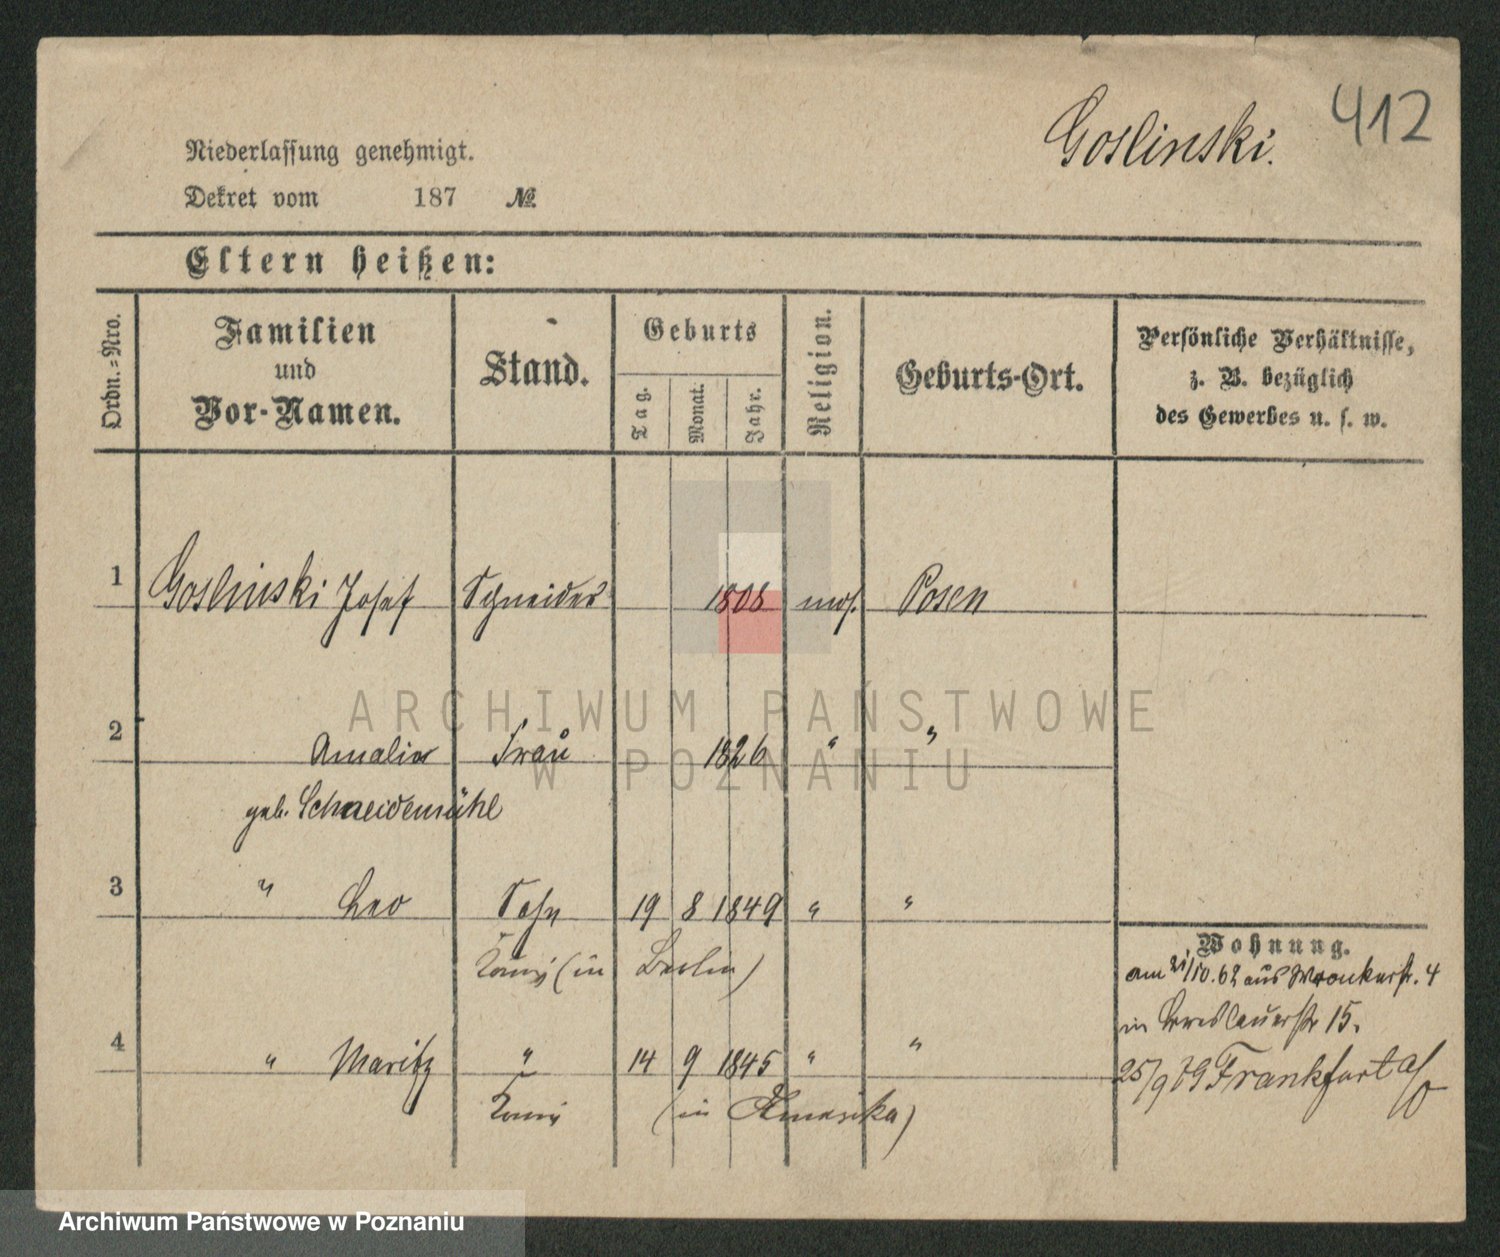 Goslinski. 412
Niederlassung genehmigt.
Dekret vom 187 №
Eltern heißen:
Ordn.-Nro.
Familien
und
Vor-Namen.
Stand.
Geburts
Tag.
Monat.
Jahr.
Religion.
Geburts-Ort.
Persönliche Verhältnisse,
z. B. bezüglich
des Gewerbes u. s. w.
1 Goslinski Josef Schneider 1808 mos. Posen
2 Amalia Frau 1826 " "
geb. Schneidemühl
3 " Leo Sohn 19 8 1849 " "
(in Berlin)
4 " Moritz " 14 9 1845 " "
(in Amerika)
Wohnung.
am 21/10. 62 aus Wronkerstr. 4
in Breslauerstr 15.
25/9 79 Frankfurt a/O
ARCHIWUM PAŃSTWOWE
W POZNANIU
Archiwum Państwowe w Poznaniu